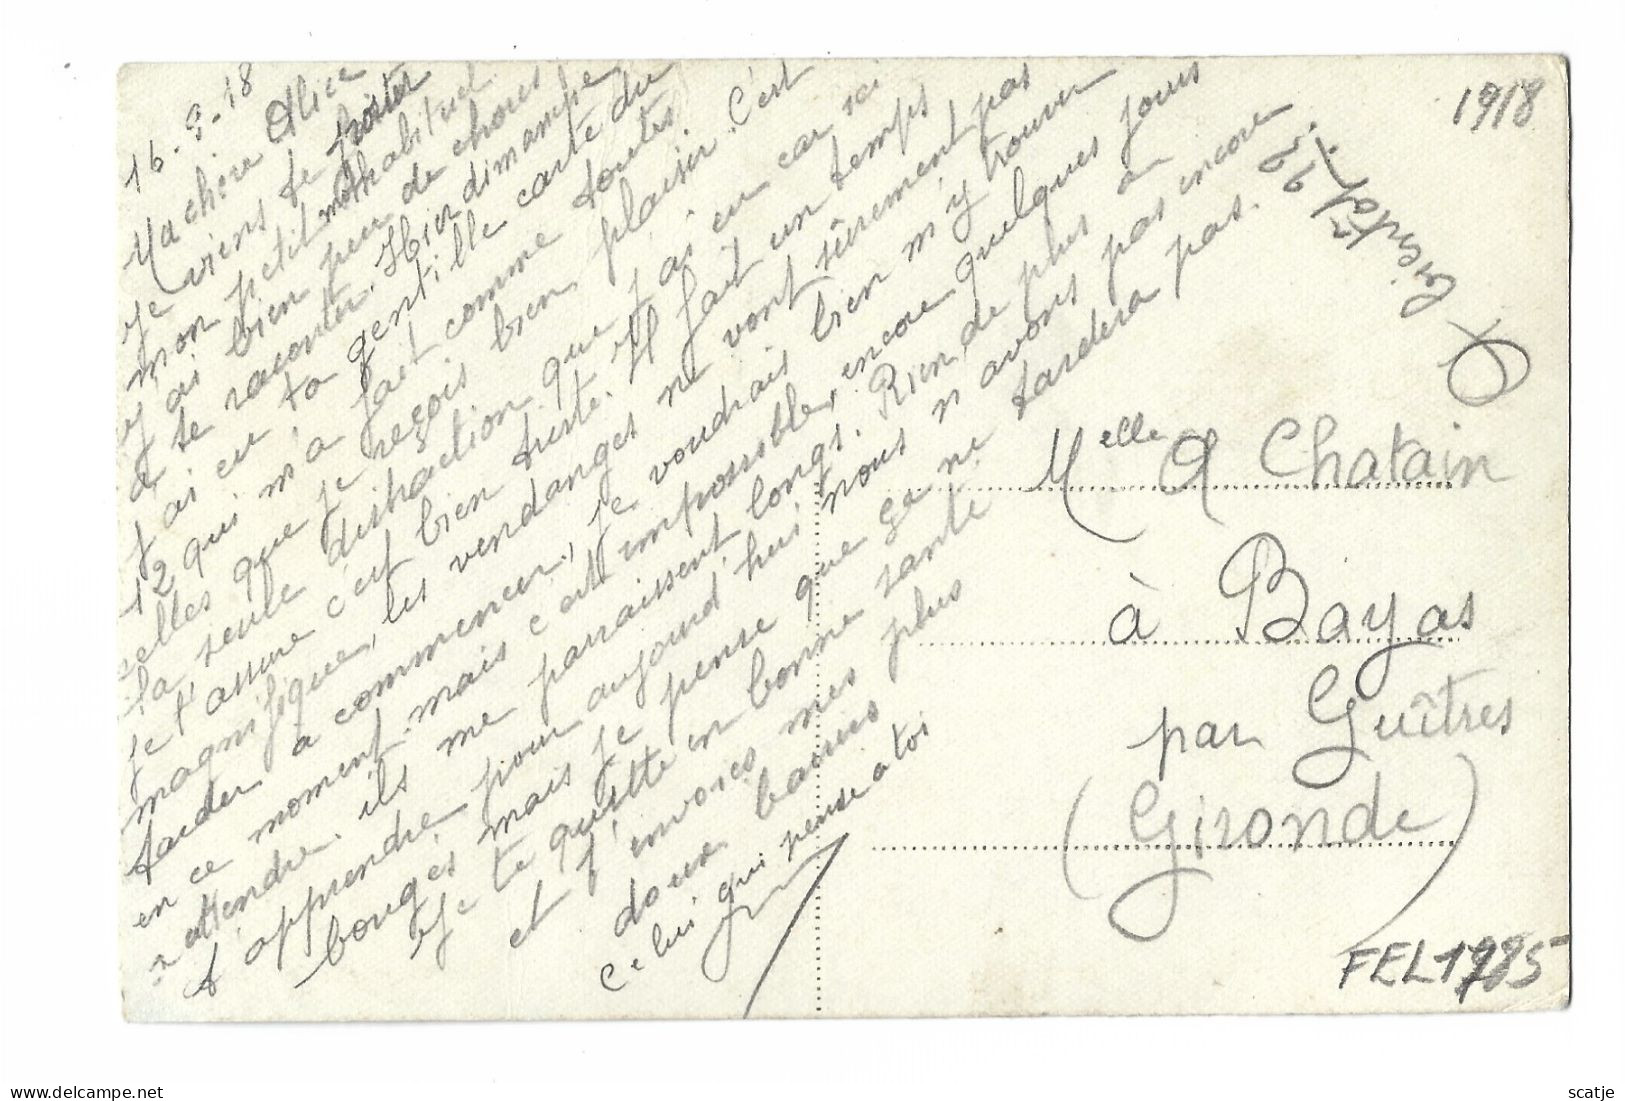 16-9-18
Ma chère Alice
Je viens te tracer
mon petit mot habituel
j'ai bien peu de choses
à te raconter. Hier dimanche
j'ai eu ta gentille carte du
12 qui m'a fait comme toutes
celles que je reçois bien plaisir. C'est
la seule distraction que j'ai eu car ici
je t'assure c'est bien triste. Il fait un temps
magnifique, les vendanges ne vont sûrement pas
tarder à commencer, je voudrais bien m'y trouver
en ce moment. mais c'est impossible, encore quelques jours
à attendre. ils me parraissent longs. Rien de plus a
t'apprendre pour aujourd'hui nous n'avons pas encore
bougés mais je pense que ça ne tardera pas.
Je te quitte en bonne santé
et t'envoies mes plus
doux baisers
Celui qui pense a toi
1918
bientôt 22.
Melle A Chatain
à Bayas
par Guîtres
(Gironde)
FEL1285
scatje